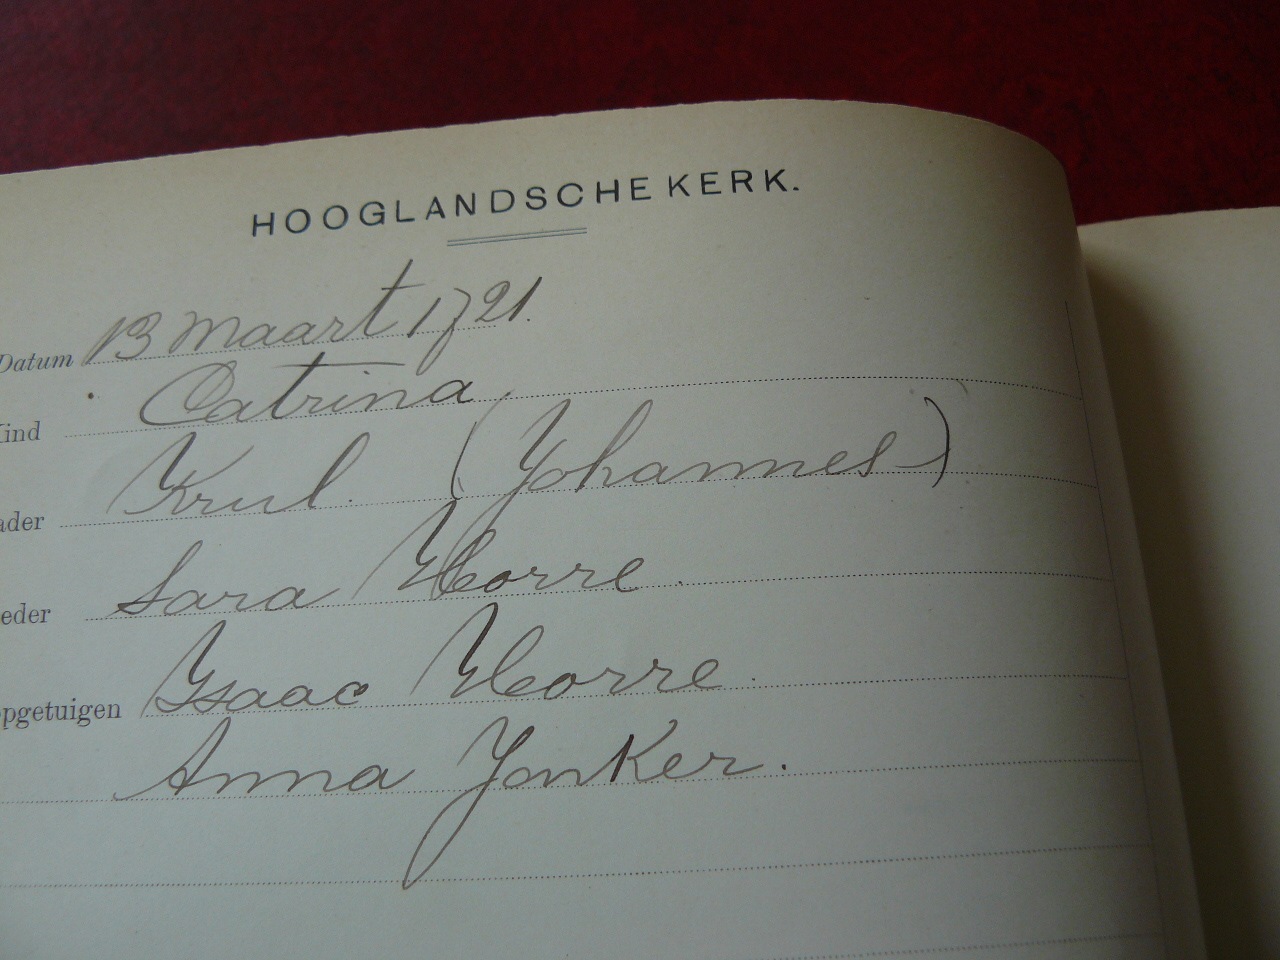 HOOGLANDSCHE KERK.
Datum 13 Maart 1721.
Kind Catrina
ader Krul. (Johannes)
eder Sara Horre.
opgetuigen Isaac Horre.
Anna Jonker.